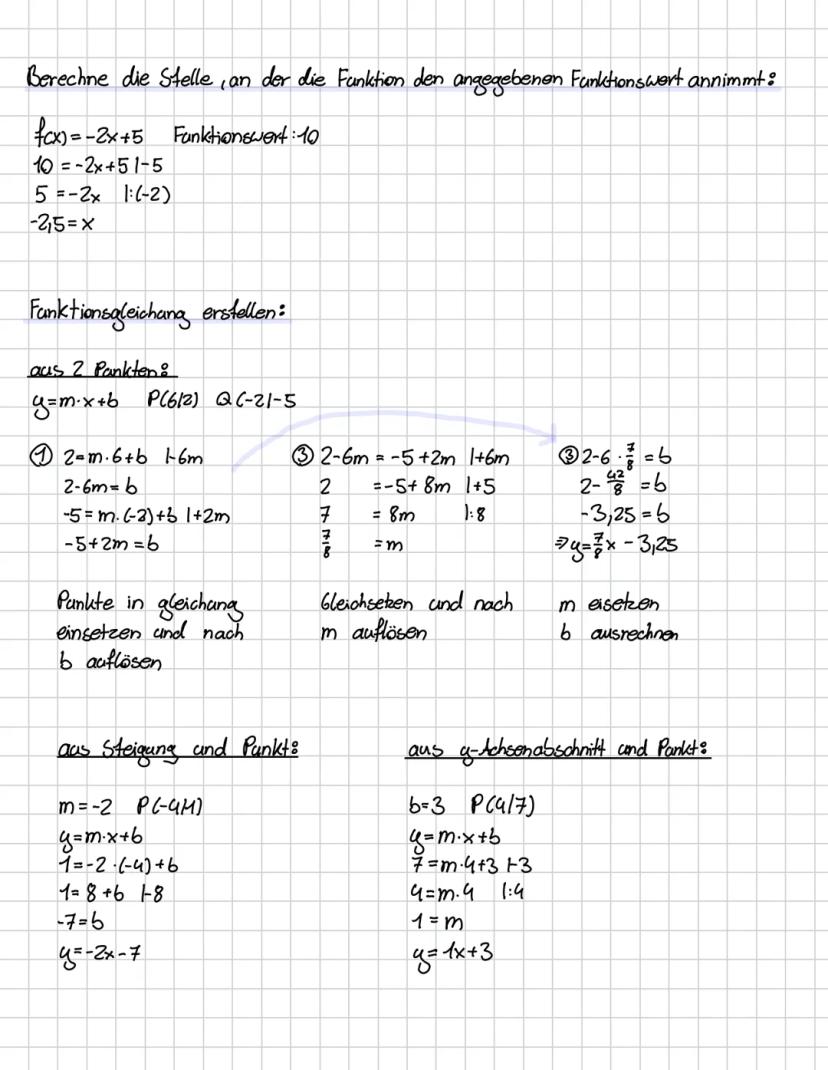 Berechne die Stelle, an der die Funktion den angegebenen Funktionswert annimmt:
f(x) = -2x+5 Funktionswert: 10
10 = -2x+5 |-5
5 = -2x |:(-2)
-2,5 = x
Funktionsgleichung erstellen:
aus 2 Punkten:
y=m·x+b P(6|2) Q(-2|-5
① 2=m·6+b |-6m
2-6m=b
-5=m·(-2)+b |+2m
-5+2m=b
Punkte in gleichung
einsetzen und nach
b auflösen
③ 2-6m = -5+2m |+6m
2 = -5+8m |+5
7 = 8m |:8
7/8 = m
Gleichsetzen und nach
m auflösen
③ 2-6·7/8 = b
2-42/8 = b
-3,25 = b
⇒ y=7/8x-3,25
m eisetzen
b ausrechnen
aus Steigung und Punkt:
m=-2 P(-4|1)
y=m·x+b
1=-2·(-4)+b
1=8+b |-8
-7=b
y=-2x-7
aus y-Achsenabschnitt und Punkt:
b=3 P(4/7)
y=m·x+b
7=m·4+3 |-3
4=m·4 |:4
1=m
y=1x+3